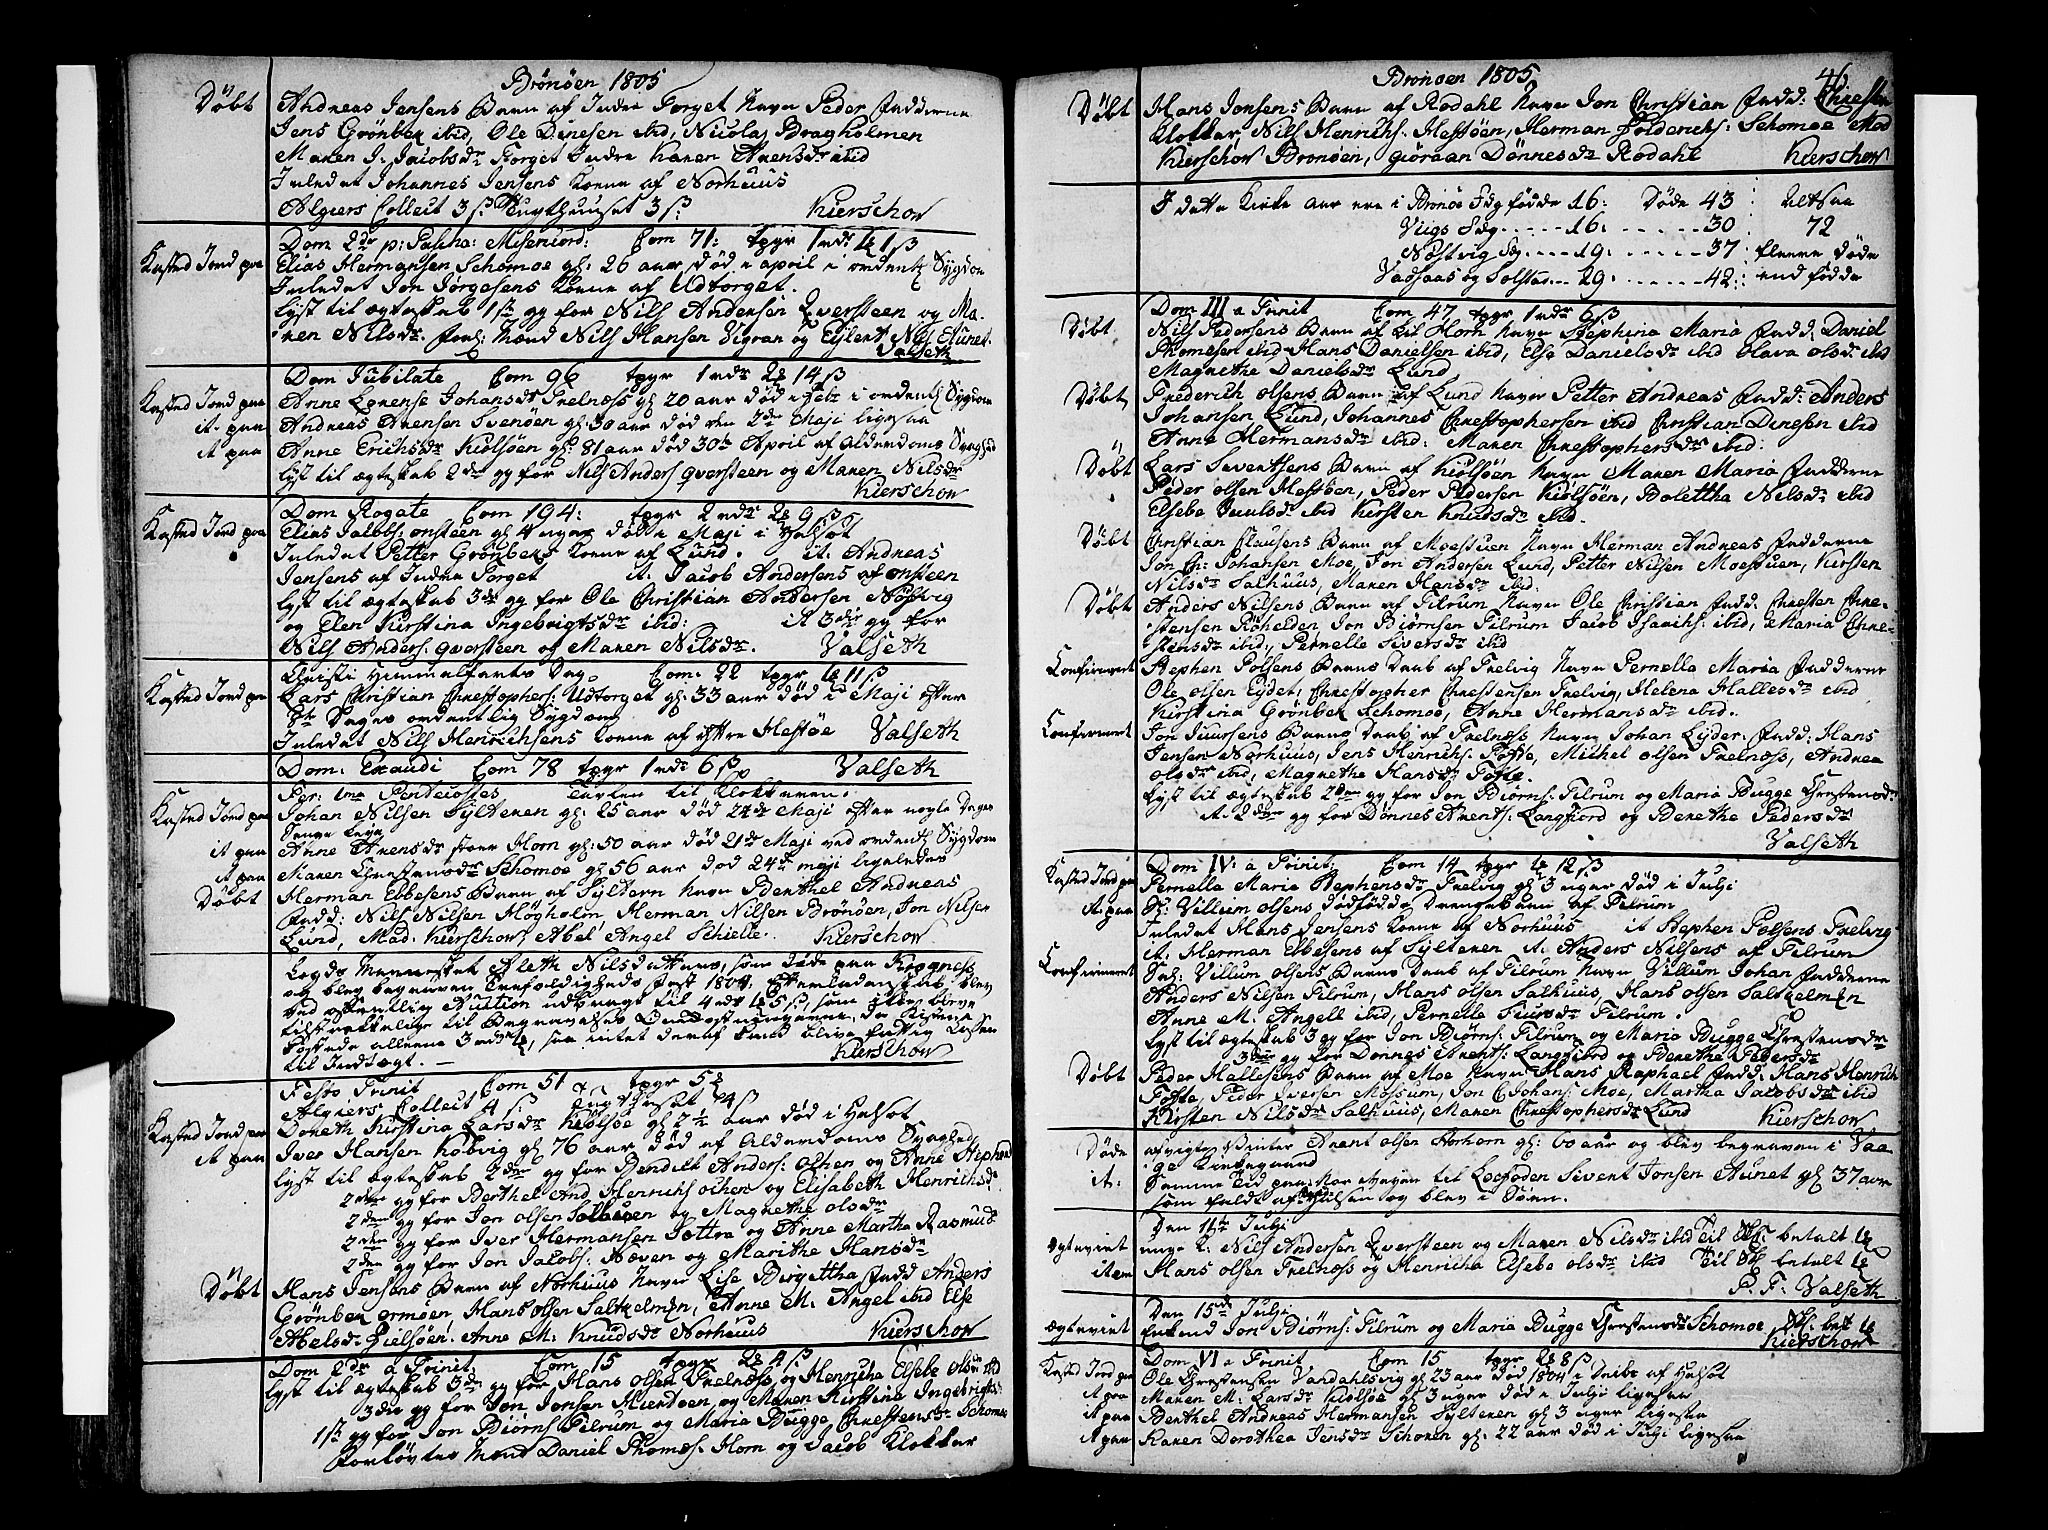 Brönöen 1805
Döbt Andreas Jensens Barn af Indre Torget Navn Peder Fadderne
Jens Grönbek ibid, Ole Dinesen ibid, Nicolaj Bragholmen
Maren J: Jacobsdr Torget Indre Karen Arensdr ibid
Inledet Johannes Jensens Kone af Norhuus
Algiers Collect 3 ß Tugthuuset 3 ß Kierschow
Dom 2de p: Pascha: Misericord: Com 71: tpgr 1 rdr 1 ß
Kasted Jord paa Elias Hermansen Schomoe gl: 26 aar död i april i ordentl Sygdom
Inledet Jon Jörgesens Kone af Udtorget.
lyst til ægteskab 1ste g for Nils Andersen Qversteen og Ma-
ren Nilsdr. forl: Mænd Nils Hansen Vigran og Nils Aunet.
Valseth
Dom Jubilate Com 96 tpgr 1 rdr 2 14 ß
Kasted Jord paa Anne Lorense Johansdr Trelnæss gl 20 aar död i Febr i ordentl Sygdom
it. paa Andreas Arensen Svenöen gl: 30 aar död den 2den Maji ligesaa
it paa Anne Erichsdr Kiulsöen gl: 81 aar död 30te April af Alderdoms Svaghed
lyst til ægteskab 2den g for Nils Anders Qversteen og Maren Nilsdr
Kierschow
Dom Rogate Com 194: tpgr 2 rdr 2 9 ß
Kasted Jord paa Elias Jacobs: onsteen gl 4 uger döde i Maji i Halsot
Inledet Petter Grönbeks Kone af Lund. it. Andreas
Jensens af Indre Torget it. Jacob Andersens af onsteen
lyst til ægteskab 3die g for Ole Christian Andersen Nöstvig
og Elen Kirstina Ingebrigtsdr ibid: it 3die g for
Nils Anders: Qversteen og Maren Nilsdr. Valseth
Christi Himmelfarts Dag Com: 22 tpgr 11 ß
Kasted Jord paa Lars Christian Christophers: Udtorget gl: 33 aar död i Maji efter
Dages ordentlig Sygdom
Inledet Nils Henrichsens Kone af Yttre Hestöe Valseth
Dom. Exaudi Com 78 tpgr 1 rdr 6 ß Valseth
Fer: 1ma Pentecostes Tavlen til Klokkeren.
Kasted Jord paa Johan Nilsen Sylteren gl: 25 aar död 22de Maji efter nogle Dages
Senge leje
it paa Anne Arensdr stoer Horn gl: 50 aar död 21de Maji ved ordentl Sygdom
it paa Maren Christensdr Schomoe gl 56 aar död 24de maji ligeledes
Döbt Herman Ebbesens Barn af Syltern Navn Berthel Andreas
Fadd: Nils Nilsen Högholm, Herman Nilsen Brönöen, Jon Nilsen
Lund, Mad: Kierschow, Abel Angel Schielle. Kierschow
Legds Mennesket Aleth Nilsdatters, som döde paa Krognæss
og blev begraven Trefoldigheds Fest 1804, Efterladenskab blev
ved offentlig Auction udbragt til 4 rdr 5 ß, som ikke bleve
tilstrækkelige til Begravelses Omkostningerne, da Kistens
allerede 3 rdr, saa intet deraf kand blive Fattig Kassen
til Indtægt. — Kierschow
Festo Trinit Com 51 tpgr 5
Algiers: Collect 4 ß Tugthuset 24 ß
Kasted Jord paa Doreth Kirstina Larsdr Kiölsöe gl 2 ½ aar död i Halsot
it paa Iver Hansen Kobvig gl 76 aar död af Alderdoms Svaghed
lyst til ægteskab 2den g for Bendict Anders: olsen og Anne Stephens
2den g for Berthel And Henrichs olsen og Elisabeth Henrichsdr
2den g for Jon olsen Salhuen og Magnethe olsdr
2den g for Iver Hermansen Sættra og Anne Martha Rasmus
2den g for Jon Jacobs: Næven og Marithe Hansdr
Döbt Hans Jensens Barn af Norhuus Navn Lise Birgettha Fadd Anders
Grönbek ormöen, Hans olsen Saltkelmen, Anne M. Angel ibid Else
Abelsdr Gielsöen. Anne M: Knudsdr Norhuus Kierschow
Dom 2de a Trinit: Com 15 tpgr 2 4 ß
lyst til ægteskab 3die g for Hans olsen Trelnæss og Henricha Elsebe olsdr ibid
3die g for Jon Jonsen Hiertöen, og Maren Kirstina Ingebrigts:
1ste g for Jon Biörns: Tilrum og Maria Bugge Christensdr Schomoe
Forlovter Mænd Daniel Thomæs: Horn og Jacob Klokker
Brönöen 1805 46
Döbt Hans Jonsens Barn af Rodahl Navn Jon Christian Fadd: Christen
Klokker, Nils Henrichs: Hestöen, Herman Folderichs: Schomoe Mad
Kierschow Brönöen, Giöraan Dönnesdr Rodahl Kierschow
I dette Kirke aar ere i Brönöe Sog födde 16: Döde 43 Altsaa
Viigs Sog.----- 16. ------ 30 72
Nöstvig Sg.---- 19. ------ 37 fleere döde
Vadsaas og Solstad.-- 29: ------ 42: end födde
Dom III a Trinit Com 47 tpgr 1 rdr 6 ß
Döbt Nils Pedersens Barn af Lil Horn Navn Stephina Maria Fadd: Daniel
Thomesen ibid Hans Danielsen ibid, Else Danielsdr ibid Olava olsdr ibid
Magnethe Danielsdr Lund
Döbt Frederich olsens Barn af Lund Navn Petter Andreas Fadd: Anders
Johansen Lund, Johannes Christophersen ibid Christian Dinesen ibid
Anne Hermansdr ibid: Maren Christophersdr ibid:
Döbt Lars Siventsens Barn af Kiölsöen Navn Maren Maria Fadderne
Peder olsen Hestöen, Peder Pedersen Kiölsöen, Bolettha Nilsdr ibid
Elsebe Juulsdr ibid Kirsten Knudsdr ibid.
Döbt Christian Clausens Barn af Moestuen Navn Herman Andreas Fadderne
Jon Ch: Johansen Moe, Jon Andersen Lund, Petter Nilsen Moestuen, Kirsten
Nilsdr Salhuus, Maren Hansdr ibid.
Döbt Anders Nilsens Barn af Tilrum Navn Ole Christian Fadd: Christen Chre-
stensen Röhelden Jon Biörnsen Tilrum Jacob Isarichs: ibid, Maria Chre-
stensdr ibid, Pernelle Siversdr ibid
Confirmert Stephen Polsens Barns Daab af Trelvig Navn Pernella Maria Fadderne
Ole olsen Eydet, Christopher Christensen Trelvig, Helena Hallesdr ibid
Kirstina Grönbek Schomoe, Anne Hermansdr ibid.
Confirmert Jon Siursens Barns Daab af Trelnæss Navn Johan Eyder. Fadd: Hans
Jensen Norhuus, Jens Henrichs: Tofte, Michel olsen Trelnæss, Andrea
olsdr ibid, Magnethe Hansdr Tofte.
lyst til ægteskab 2den g for Jon Biörns: Tilrum og Maria Bugge Christensdr
it. 2den g for Dönnes Arents: Langfiord og Berethe Pedersdr
Valseth
Dom IV: a Trinit: Com 14 tpgr 12 ß
Kasted Jord paa Pernella Maria Stephensdr Trelvig gl 3 uger död i Julji
it. paa Sl: Villum olsens dödfödde Drengebarn af Tilrum
Inledet Hans Jensens Kone af Norhuus it Stephen Polsens Trelvig
it. Herman Ebbesens af Sylteren it. Anders Nilsens af Tilrum
Confirmert Sal: Villum olsens Barns Daab af Tilrum Navn Villum Johan Fadderne
Anders Nilsen Tilrum, Hans olsen Salhuus, Hans olsen Saltkelmen
Anne M. Angell ibid, Pernelle Siursdr Tilrum.
lyst til ægteskab 3 g for Jon Biörns: Tilrum og Maria Bugge Christensdr
3die g for Dönnes Arents: Langfiord og Berethe Pedersdr
Döbt Peder Hallesens Barn af Moe Navn Hans Raphael Fadd: Hans Henrich
Tofte, Peder Iversen Mossum, Jon C Johans: Moe, Martha Jacobsdr ibid
Kirsten Nilsdr Salhuus, Maren Christophersdr Lund Kierschow
Döde afvigte Vinter Arent olsen Storhorn gl: 60 aar og blev begraven i Vaa-
ge Kirkegaard
it: Samme Tid paa Nor Reisen til Lofoden Sivert Jonsen Aunet gl 37 aar
som faldt af Hulsen og blev i Söen.
Den 11te Julji
Egteviet unge K: Nils Andersen Qversteen og Maren Nilsdr ibid Til betalt
item Hans olsen Trelnæss og Henricha Elsebe olsdr ibid Til betalt
P. F: Valseth
Den 15de Julji
Egteviet Enkemd Jon Biörns: Tilrum og Maria Bugge Christensdr Schomoe bet
Kierschow
Dom VI a Trinit Com 15 tpgr 2 8 ß
Kasted Jord paa Ole Christensen Vandahlsvig gl 23 aar död 1804 i Tribe af Halsot
it paa Maren M: Larsdr Kiölsöe gl 3 uger död i Julji ligesaa
it paa Berthel Andreas Hermansen Sylteren gl 3 uger ligesaa
it paa Karen Dorothea Jensdr Schoren gl. 22 aar död i Julji ligesaa